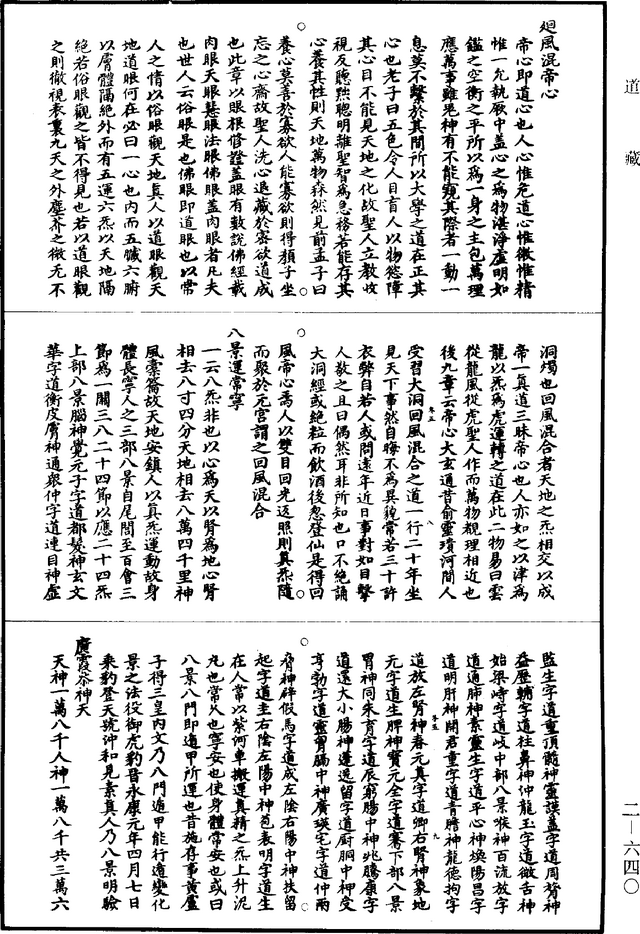 道藏
二—六四〇
廻風混帝心
帝心即道心也人心惟危道心惟微惟精
惟一允執厥中蓋心之為物湛淨虛明如
鑑之空衡之平所以為一身之主包萬理
應萬事雖鬼神有不能窺其際者一動一
息莫不繫於其間所以大學之道在正其
心也老子曰五色令人目盲人以物慾障
其心目不能見天地之化故聖人立教收
視反聽黜聰明離聖智為息務若能存其
心養其性則天地萬物森然見前孟子曰
養心莫善於寡欲人能寡欲則得顏子坐
忘之心齋故聖人洗心退藏於密欲道成
也此章以眼根修證蓋眼有數說佛經載
肉眼天眼慧眼法眼佛眼蓋肉眼者凡夫
也世人云俗眼是也佛眼即道眼也以常
人之情以俗眼觀天地真人以道眼觀天
地道眼何在必曰一心也內而五臟六腑
以膚體隔絕外而有五運六炁以天地隔
絕若俗眼觀之皆不得見也若以道眼觀
之則徹視表裏九天之外塵芥之微无不
洞燭也回風混合者天地之炁相交以成
帝一真道三昧帝心也人亦如之以津為
龍以炁為虎運轉之道在此二物易曰雲
從龍風從虎聖人作而萬物覩理相近也
後九章云帝心大玄通昔俞靈璝河間人
受習大洞回風混合之道一行二十年坐
見天下事然自晦不為異貌常若三十許
衣弊自若人或問遠年近日事對如目擊
人敬之且曰偶然耳非所知也口不絕誦
大洞經或絕粒而飲酒後忽登仙是得回
風帝心焉人以雙目回光返照則真炁隨
而聚於元宮謂之回風混合
八景運常寧
一云八炁非也以心為天以腎為地心腎
相去八寸四分天地相去八萬四千里神
風橐籥故天地安鎮人以真炁運動故身
體長寧人之三部八景自尾閭至百會三
節為一關三八二十四節以應二十四炁
上部八景腦神覺元子字道都髮神玄文
華字道衡皮膚神通眾仲字道連目神虛
監生字道童頂髓神靈謨蓋字道周膂神
益歷輔字道柱鼻神仲龍玉字道微舌神
始梁峙字道岐中部八景喉神百流放字
道通肺神素靈生字道平心神煥陽昌字
道明肝神開君童字道青膽神龍德拘字
道放左腎神春元真字道卿右腎神象地
元字道生脾神寶元全字道騫下部八景
胃神同朱育字道展窮腸中神兆騰康字
道還大小腸神蓬送留字道廚胴中神受
亨勃字道靈胃膈中神廣瑛宅字道仲兩
脅神辟假馬字道成左陰右陽中神扶留
起字道圭右陰左陽中神苞表明字道生
在人常以紫河車搬運真精之炁上升泥
丸也常久也寧安也使身體常安也或曰
八景八門即遁甲所運也昔施存事黃盧
子得三皇內文乃八門遁甲能行遁變化
景之法役御虎豹晉永康元年四月七日
乘豹登天號沖和見素真人乃八景明驗
慶霞恭神天
天神一萬八千人神一萬八千共三萬六